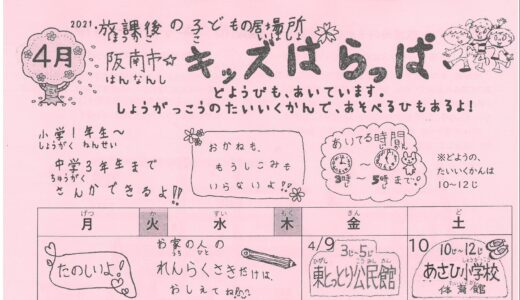 2021.
4月
放課後の子どもの居場所
ほうかご
いばしょ
阪南市☆
はんなんし
キッズはらっぱ
どようびも、あいています。
しょうがっこうのたいいくかんで、あそべるひもあるよ!
小学1年生～
しょうがく ねんせい
中学3年生まで
ちゅうがく
さんかできるよ!!
おかねも、
もうしこみも
いらないよ!!
あいてる時間
じかん
3時～5時まで!
じ じ
※どようの、
たいいくかんは
10～12じ
げつ か すい もく きん ど
月 火 水 木 金 土
たのしいよ!
お家の人の
うち ひと
れんらくさきだけは、
おしえてね
4/9 3じ～5じ
ひがし こうみんかん
東とっとり公民館
10 10じ～12じ
しょうがっこう
あさひ小学校
体育館
たいいくかん